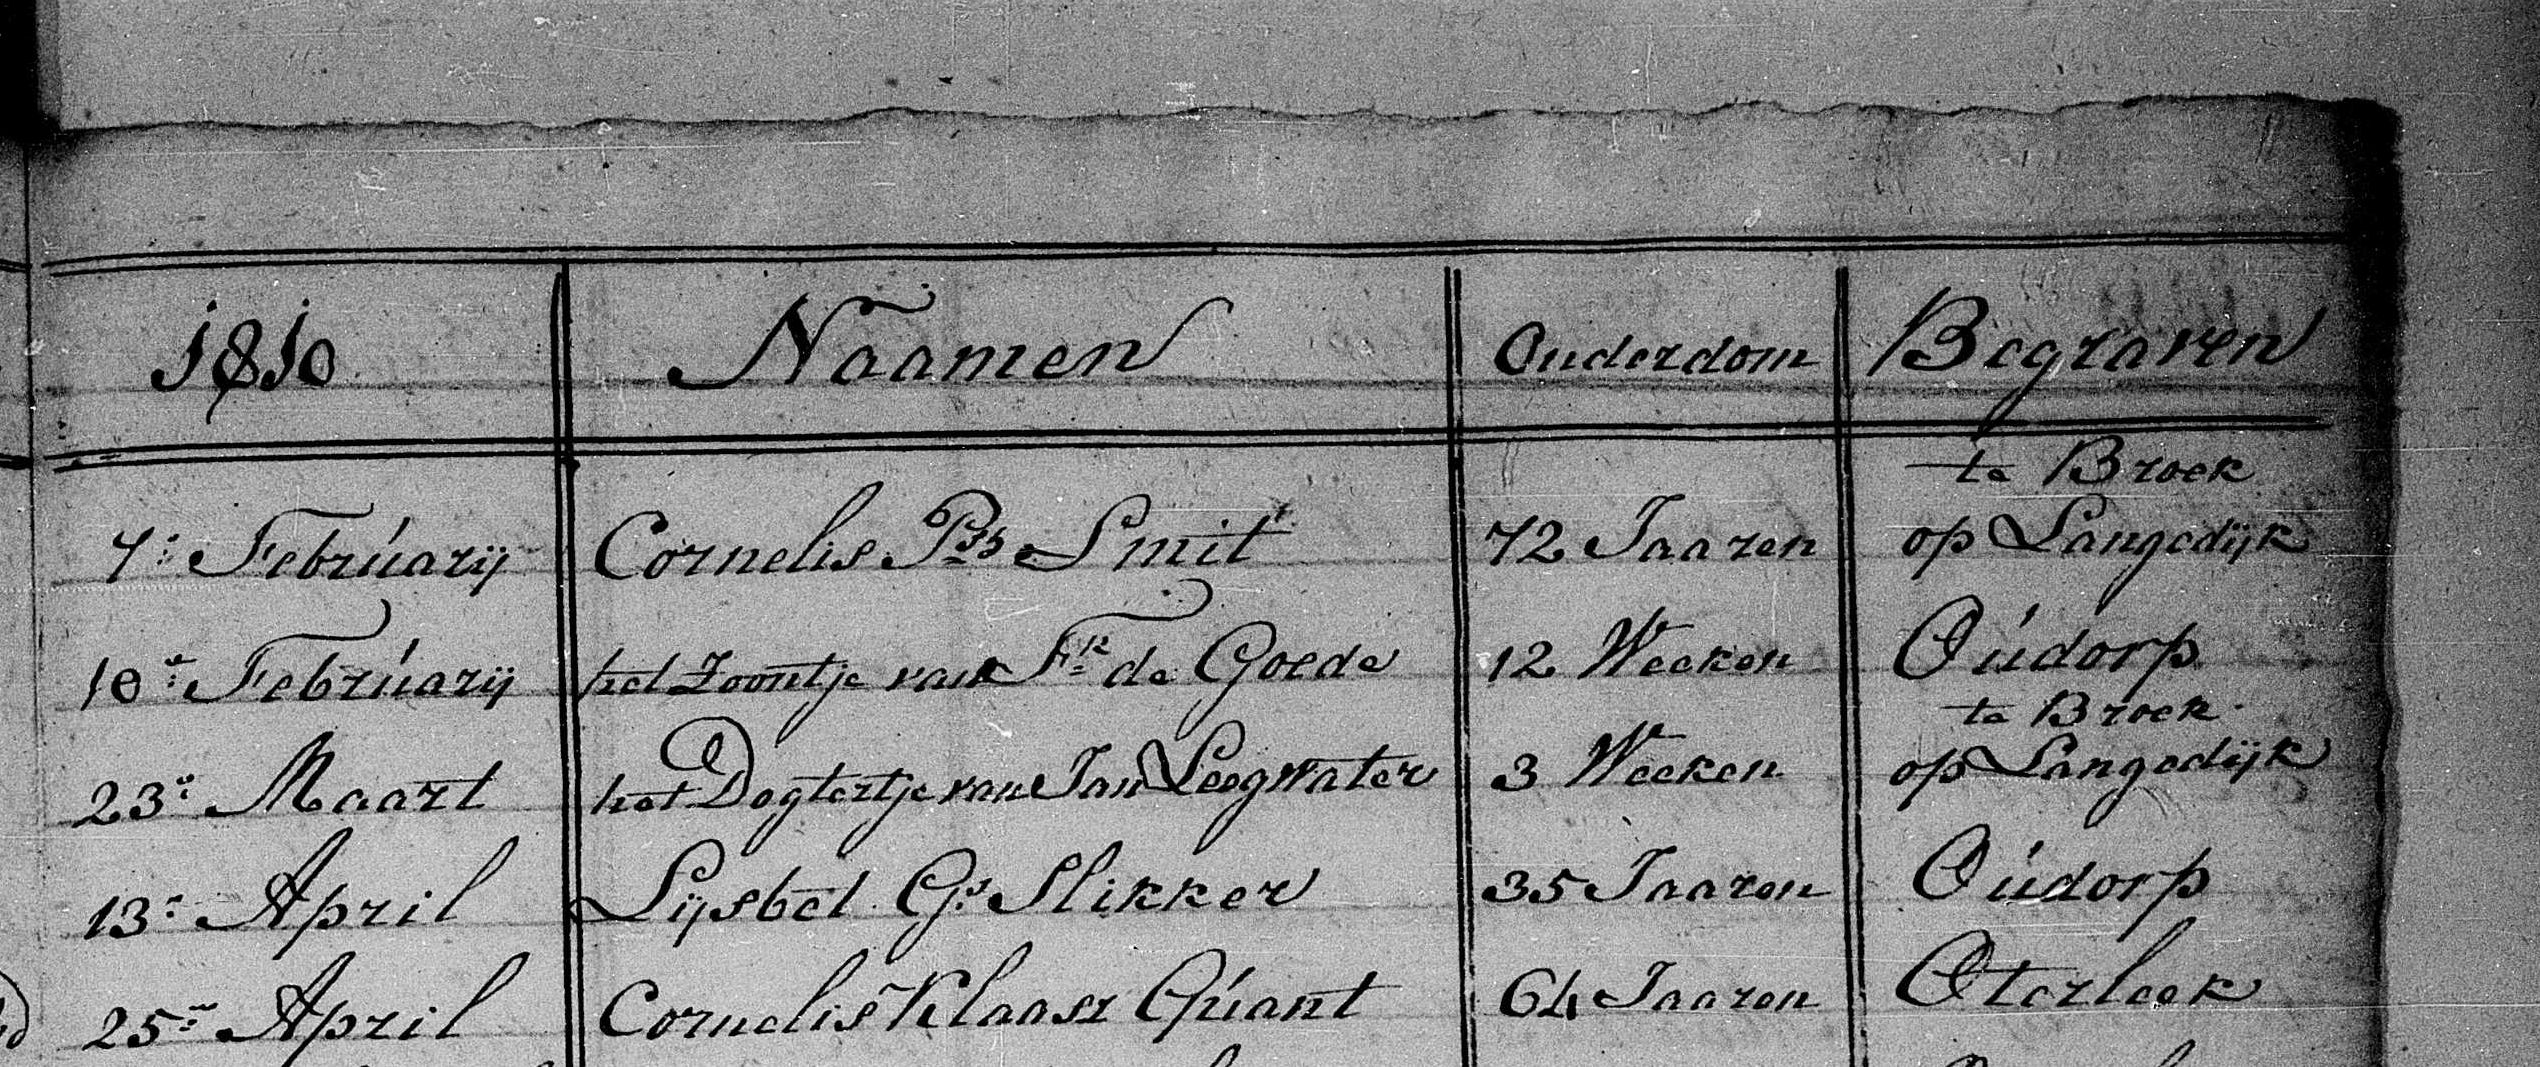 1810 Naamen Ouderdom Begraven
te Broek
7: Februarij Cornelis Pss Smit 72 Jaaren op Langedijk
10: Februarij het Zoontje van Fk de Goede 12 Weeken Oudorp
te Broek
23: Maart het Dogtertje van Jan Leegwater 3 Weeken op Langedijk
13: April Lijsbet Gs Slikker 35 Jaaren Oudorp
25: April Cornelis Klaasz Quant 64 Jaaren Oterleek